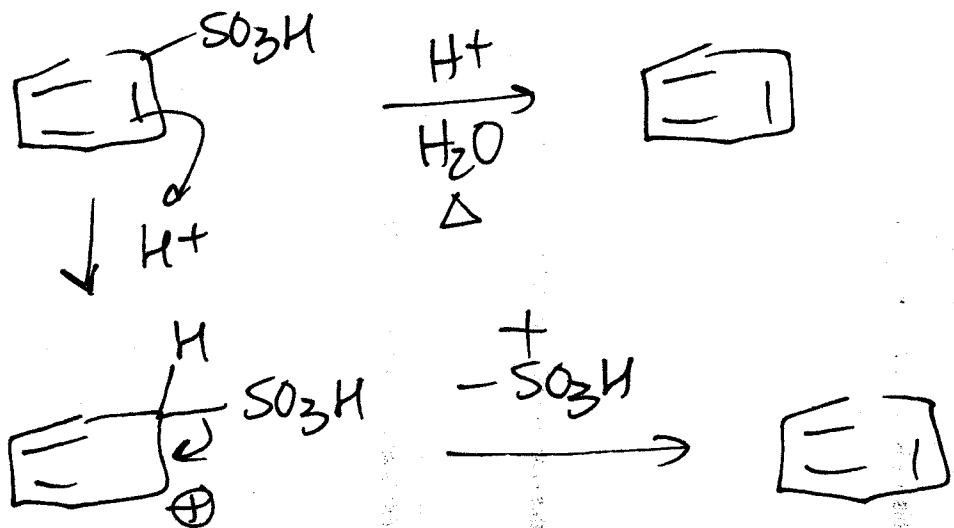 SO3H
H+
H2O
Δ
H+
H
SO3H
⊕
+
-SO3H